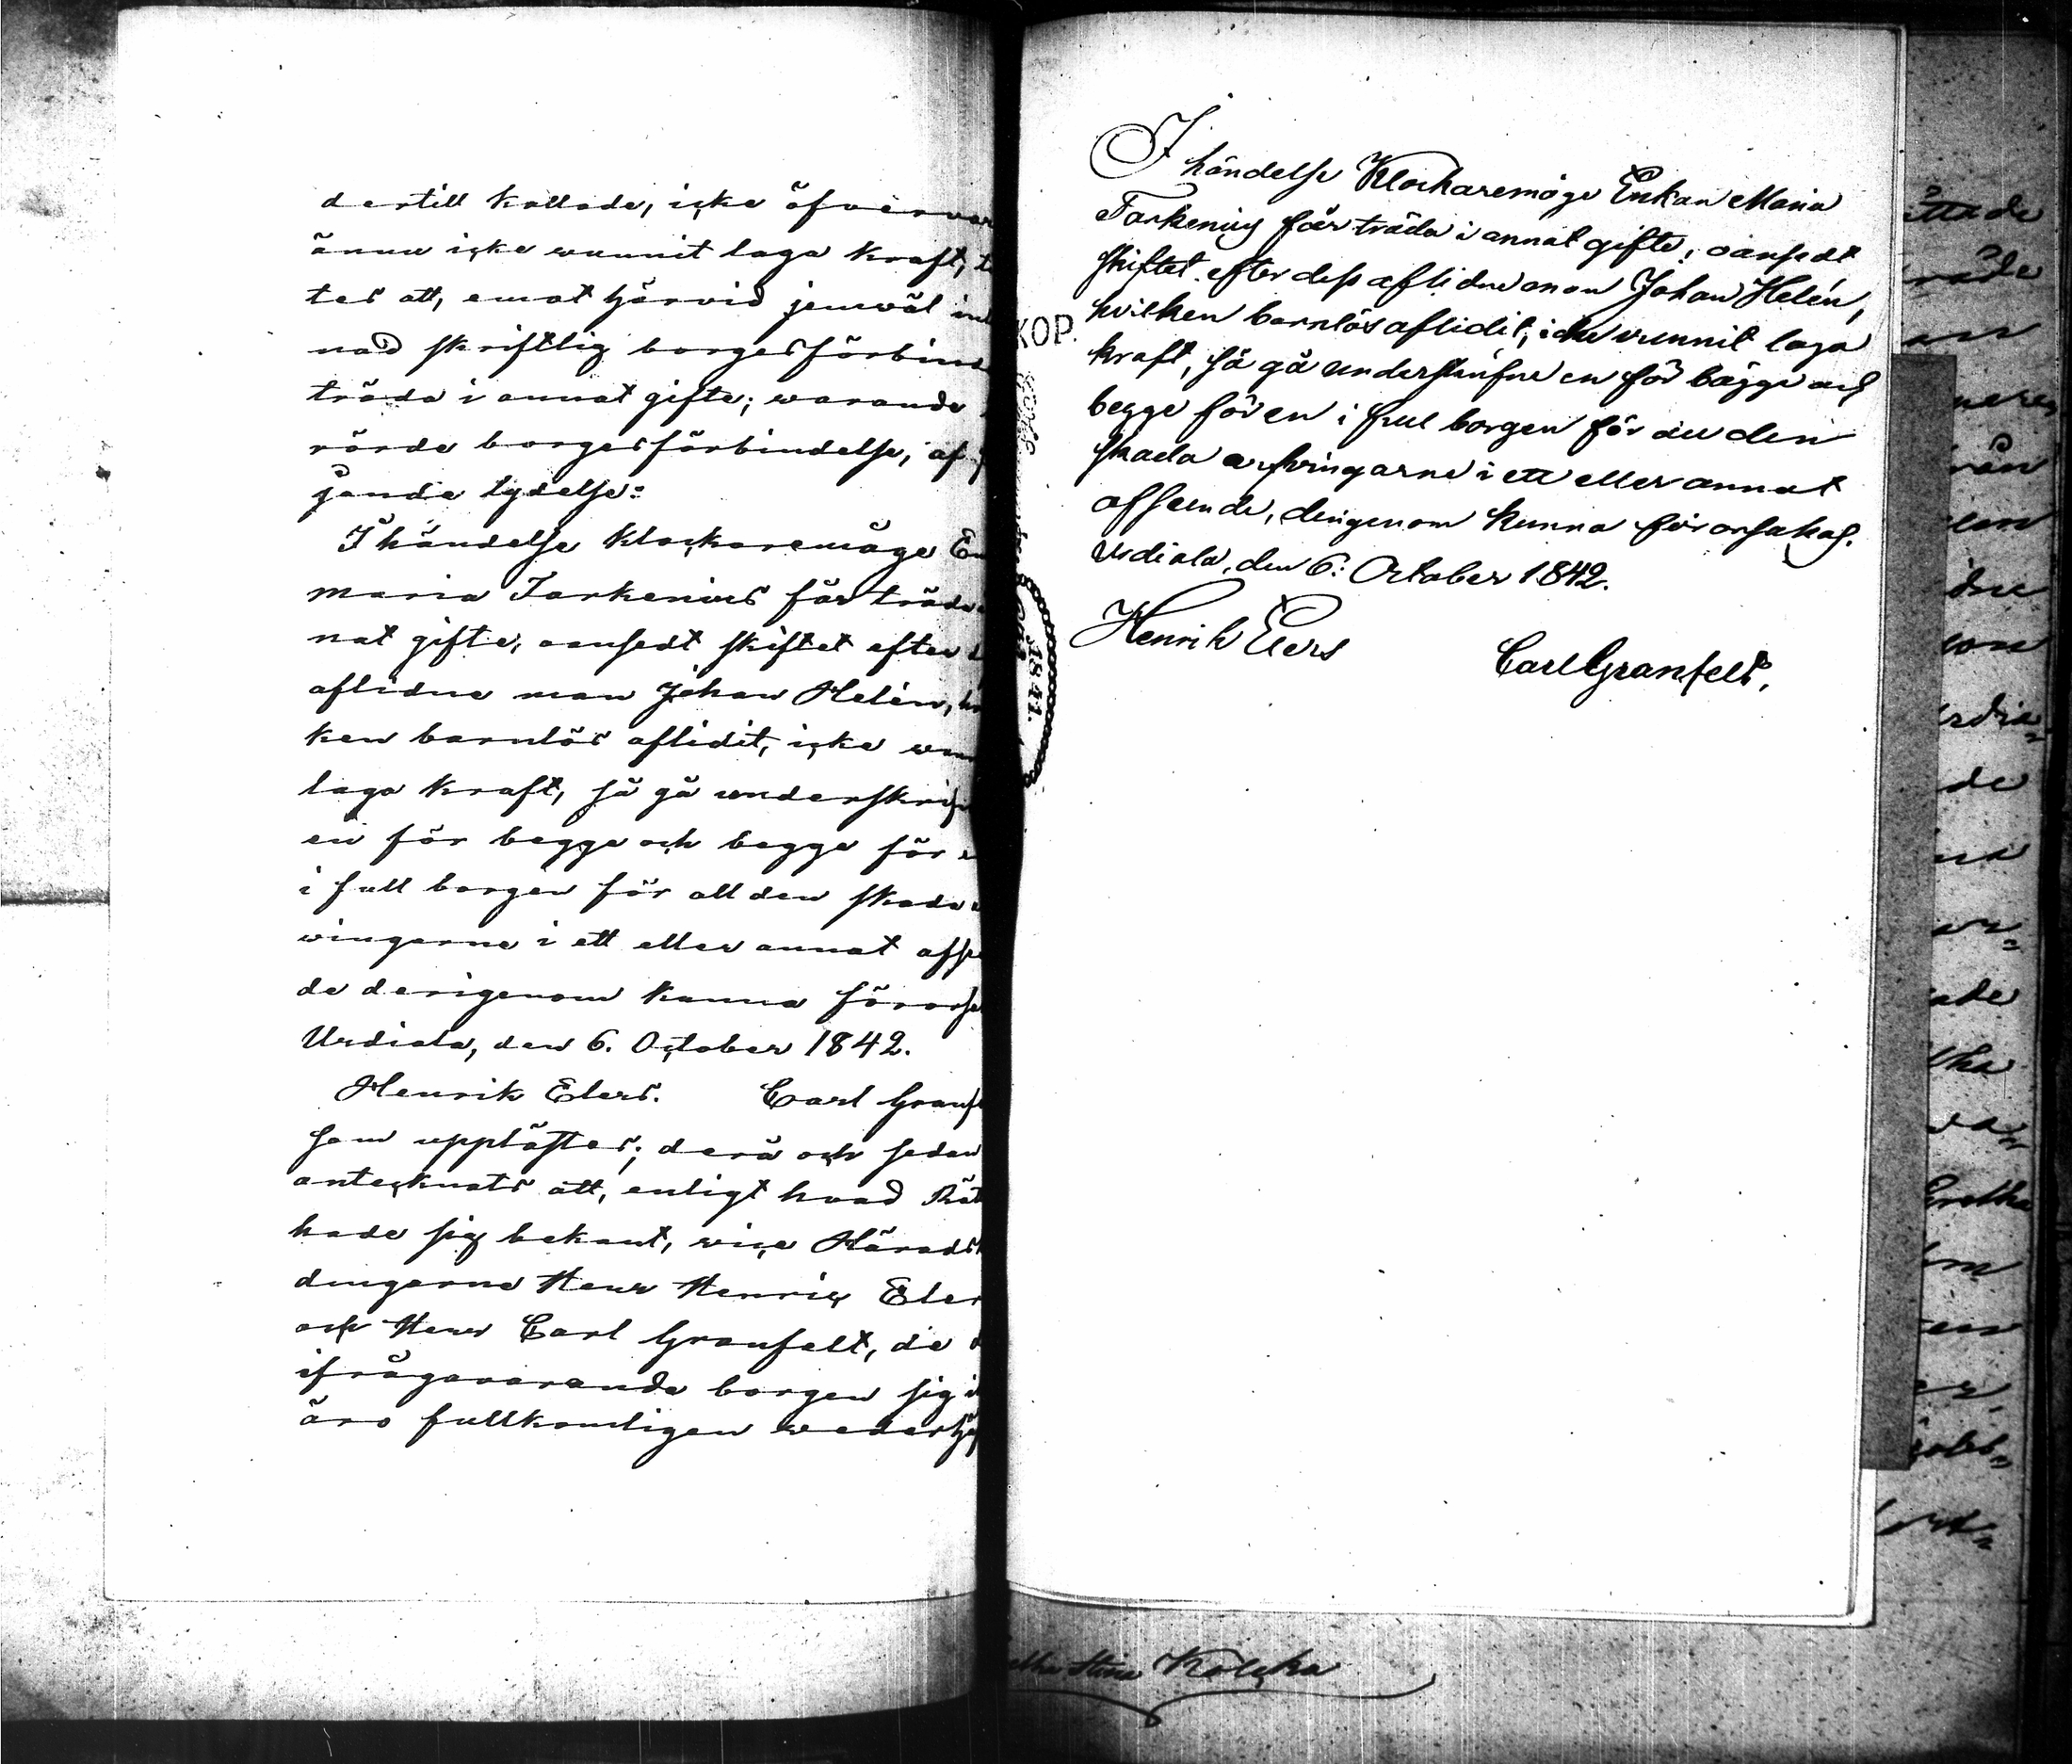 dertill kallade, icke öfvervar
ännu icke wunnit laga kraft,
tes att, emot härvid jemwäl
nad skriftlig borgesförbind
träda i annat gifte; warande
rörde borgesförbindelse, af
jande lydelse:
I händelse Klockaremåge En
Maria Tarkenius får träda
nat gifte, oansedt skiftet efter
aflidne man Johan Helén, hv
ken barnlös aflidit, icke wun
laga kraft, så gå underskrif
en för begge och begge för e
i full borgen för all den skada
vingarne i ett eller annat afse
de derigenom kunna förorsa
Urdiala, den 6. October 1842.
Henrik Elers. Carl Granf
som upplästes; derå och sedan
antecknats att, enligt hvad Rät
hade sig bekant, vice Härads
dingarne Herr Henric Eler
och Herr Carl Granfelt, de
ifrågavarande borgen sig
äro fullkomligen wederhäf
KOP.
1841.
I händelse Klockaremåge Enkan Maria
Tarkenius får träda i annat gifte, oansedt
skiftet efter dess aflidne man Johan Helén,
hvilken barnlös aflidit, icke vunnit laga
kraft, så gå underskrifne en för bägge och
begge för en i full borgen för all den
skada arfvingarne i ett eller annat
afseende, derigenom kunna förorsakas.
Urdiala, den 6: October 1842.
Henrik Elers
Carl Granfelt,
Stina Kölcka